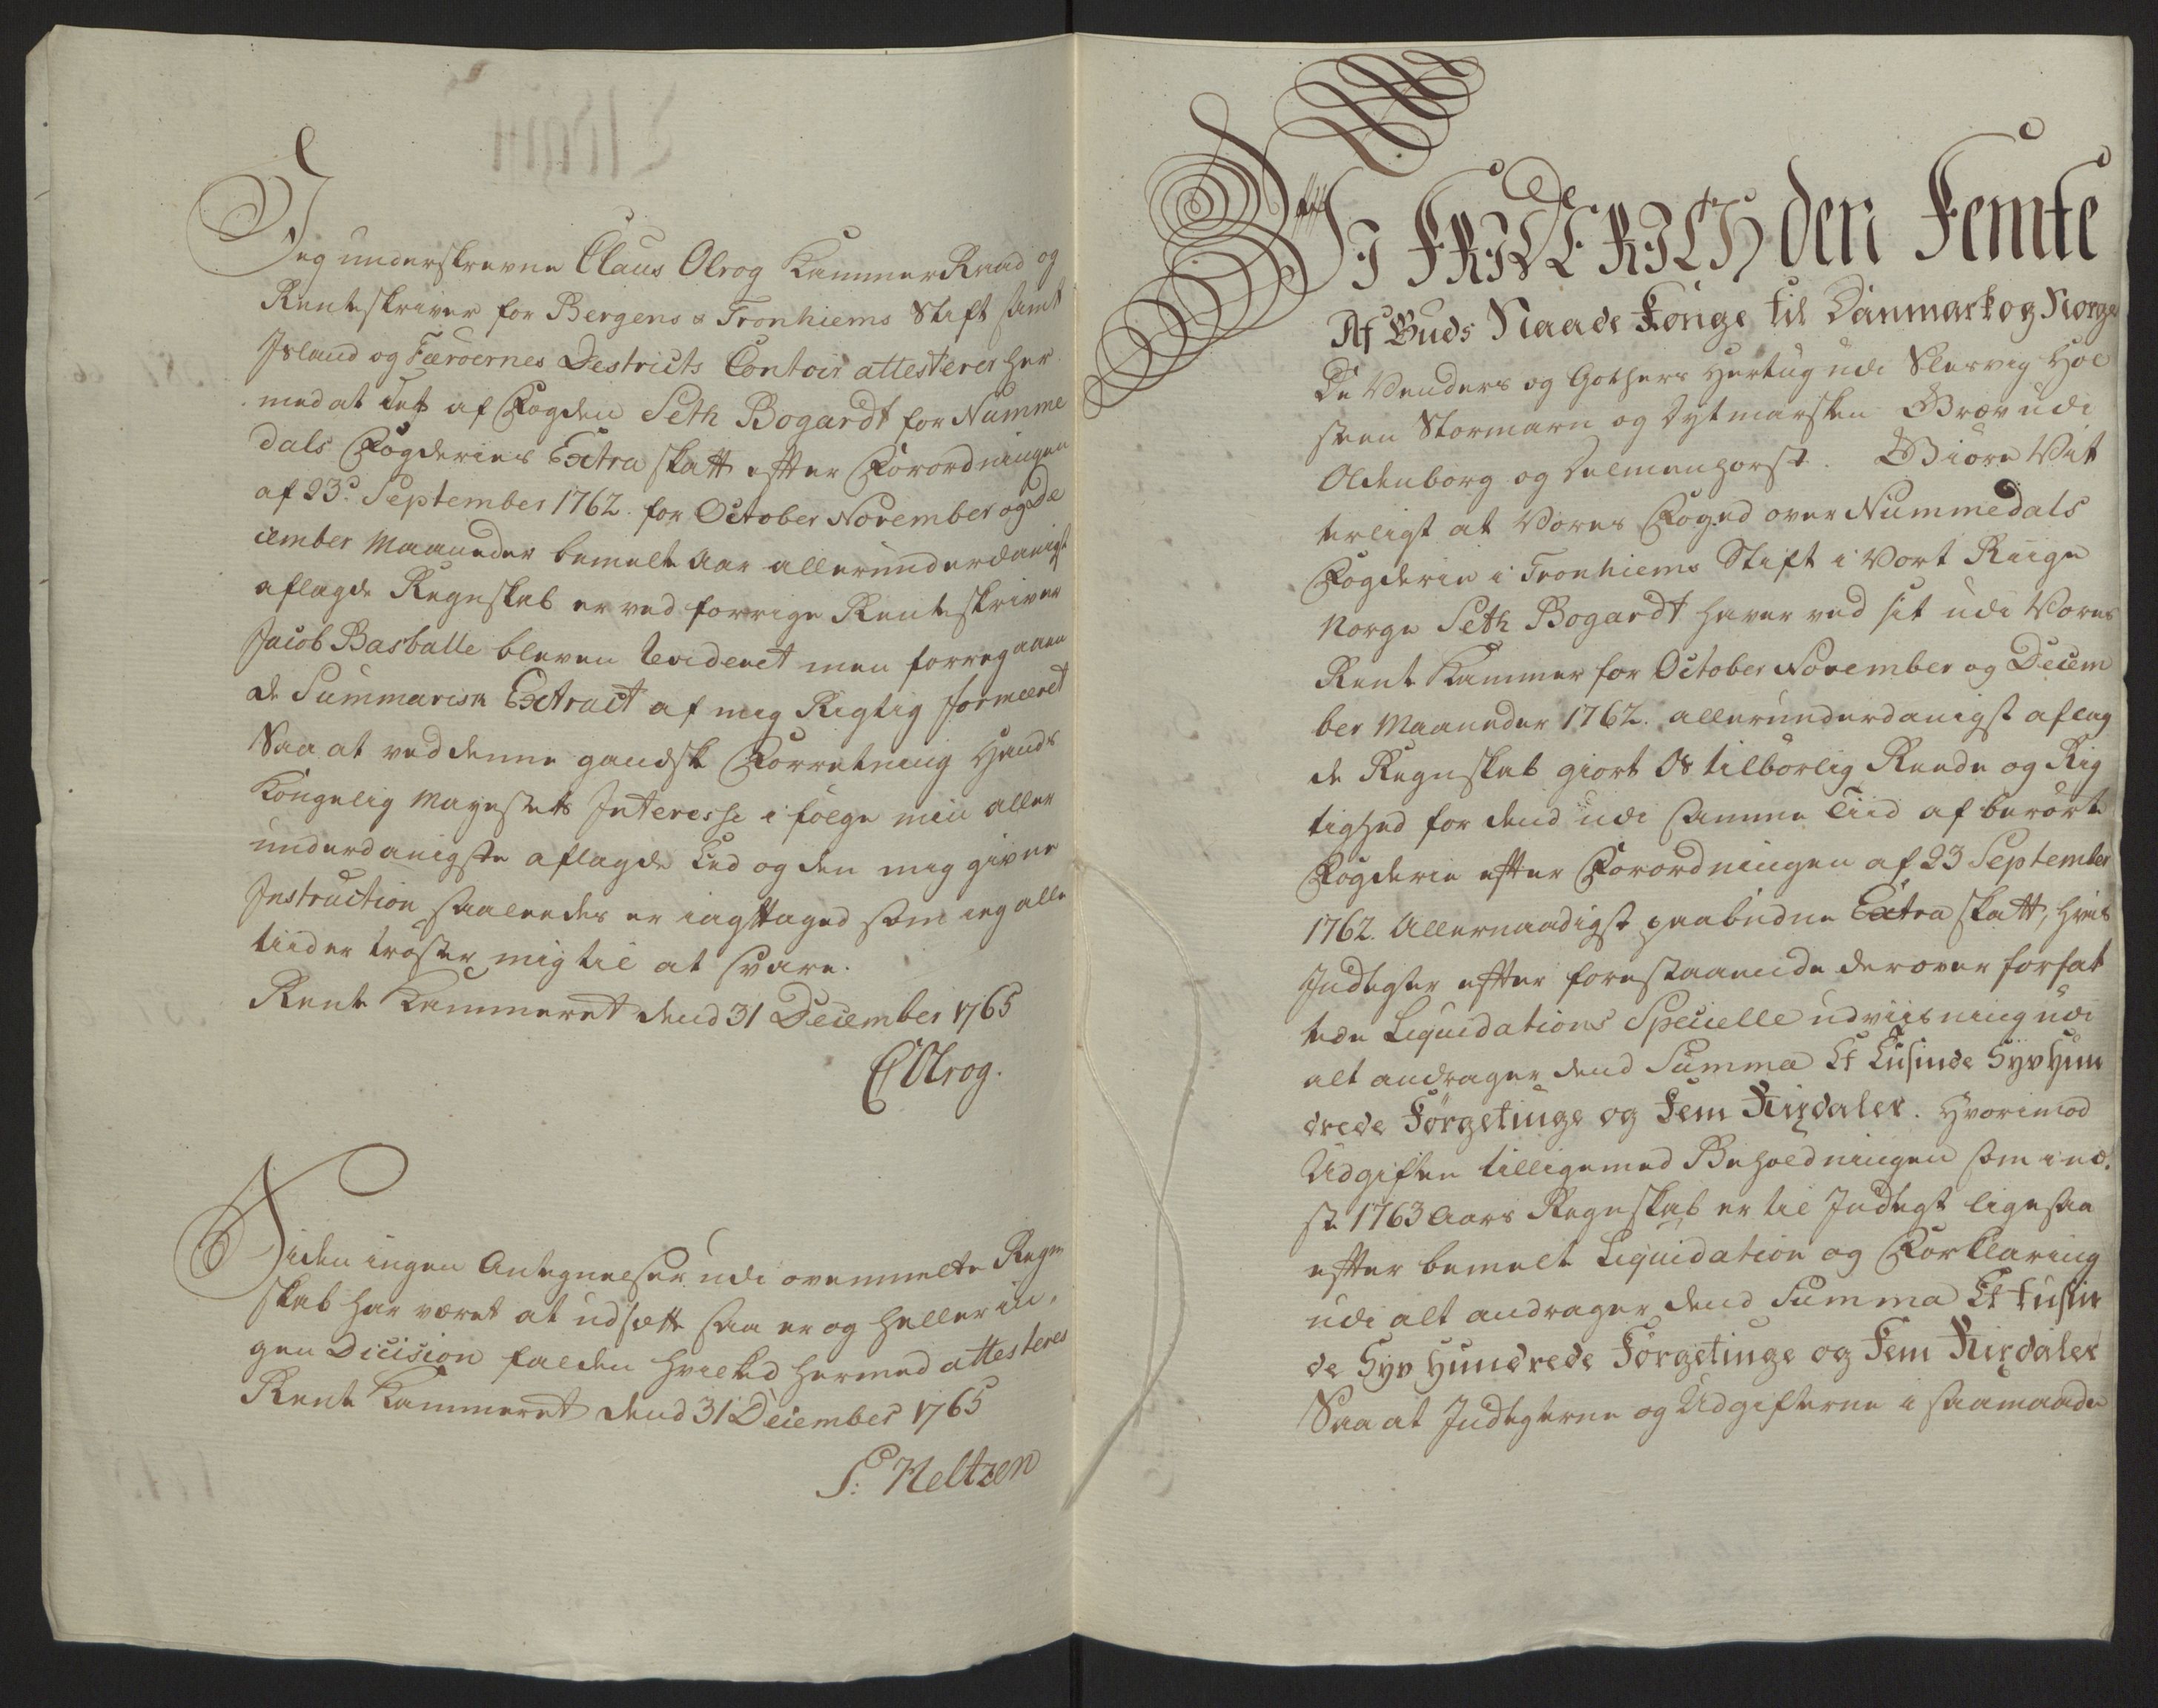 Jeg underskrevne Claus Olrog Kammer Raad og
Renteskriver for Bergens & Tronhiems Stift samt
Island og Færöernes Destricts Contoir attesterer her
med at det af Fogden Seth Bogardt for Numme
dals Fogderies Extra skatt efter Forordningen
af 23de September 1762. for October November og De
cember Maaneder bemelte Aar allerunderdanigst
aflagde Regnskab er ved forrige Renteskriver
Jacob Basballe bleven Revideret men forregaaen
de Summarisk Extract af mig Rigtig formeret
Saa at ved denne gandske Forretning Hands
Kongelig Mayestets Interesse i følge min aller
underdanigste aflagde Eed og den mig givne
Instruction saaledes er iagttaged som ieg alle
tiider trøster mig til at svare.
Rente Kammeret dend 31 December 1765
C Olrog.
Siden ingen Antegnelser udi ovenmelte Regn
skab har været at udsætte saa er og heller in,
gen Dicision falden hvilked hermed attesteres
Rente Kammeret dend 31 December 1765
P: Heltzen
Vi FRIDERICH den Femte
Af Guds Naade Konge til Danmark og Norge
De Venders og Gothers Hertug udi Slesvig Hol
steen Stormarn og Dytmarsken Greve udi
Oldenborg og Delmenhorst. Giøre Vit
terligt at Vores Foged over Nummedals
Fogderie i Tronhiems Stift i Vort Riige
Norge Seth Bogardt haver ved sit udi Vores
Rente Kammer for October November og Decem
ber Maaneder 1762. allerunderdanigst aflag
de Regnskab giort Os tilbørlig Reede og Rig
tighed for dend udi samme Tiid af berørte
Fogderie efter Forordningen af 23 September
1762. Allernaadigst paabudne Extra skatt, hvis
Indtegter efter forestaaende derover forfat
tede Liquidations Specielle udviisning udi
alt andrager dend Summa Et Tusinde Syv Hun
drede Førgetinge og Fem Rixdaler. Hvorimod
Udgiften tilligemed Beholdningen som i næ,
ste 1763 Aars Regnskab er til Indtegt ligesaa
efter bemelt Liquidation og Forklaring
udi alt andrager dend Summa Et Tusin
de Syv Hundrede Førgetinge og Fem Rixdaler
Saa at Indtegterne og Udgifterne i saamaade